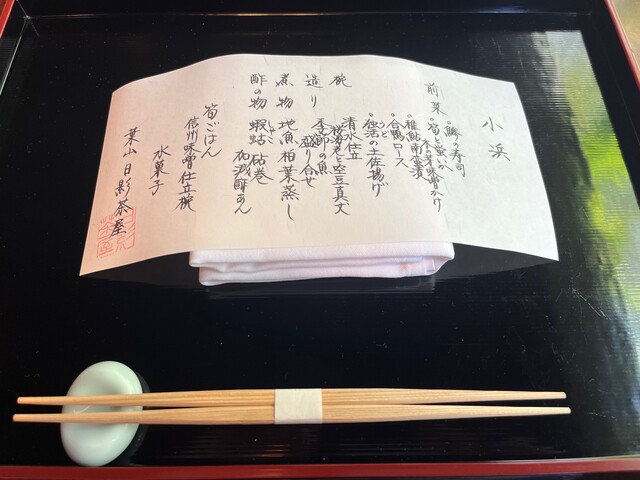 小浜
前菜
・鯵の寿司
・筍と蛍いか
木の芽味噌かけ
・稚鮎南蛮漬
・合鴨ロース
・独活の土佐揚げ
うど
椀
清水仕立
桜海老と空豆真丈
造り
季節の魚
盛り合せ
煮物
地魚柏葉蒸し
酢の物
蝦蛄砧巻
しゃこ
加減酢あん
筍ごはん
信州味噌仕立椀
水菓子
葉山日影茶屋